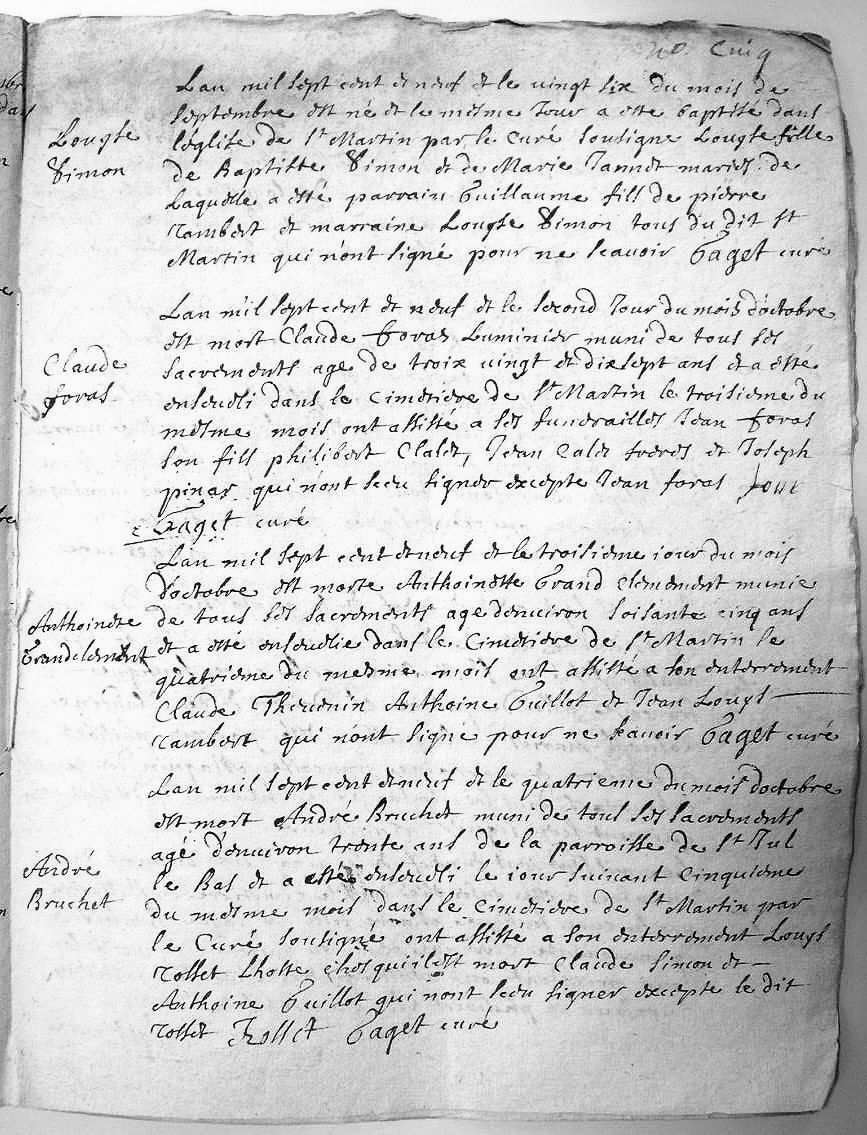 no. Cinq
Lan mil sept cent et neuf et le vingt six du mois de
septembre est né et le mesme Jour a este baptisé dans
Lougse
Simon
léglise de St Martin par le Curé sousigne Lougse fille
de Baptiste Simon et de Marie Jannet mariés de
Laquelle a esté parrain Guillaume fill de pierre
rambert et marraine Lougse Simon tous du dit St
Martin qui nont signé pour ne scavoir Gaget curé
Lan mil sept cent et neuf et le second Jour du mois doctobre
est mort Claude foras Luminier muni de tous ses
Claude
foras
sacrements age de troix vingt et dixsept ans et a esté
enseueli dans le Cimetiere de St Martin le troisieme du
mesme mois ont assisté a ses funerailles Jean foras
son fill philibert Claler, Jean Caler freres et Joseph
pinar qui nont sceu signer excepte Jean foras
Gaget curé
Lan mil sept cent et neuf et le troisieme iour du mois
doctobre est morte Anthoinette Grand clemement munie
Anthoinette
Grandclement
de tous ses sacrements age denuiron soisante cinq ans
et a esté enseuelie dans le Cimetiere de St Martin le
quatrieme du mesme mois ont assisté a son enterrement
Claude Theuenin Anthoine Guillot et Jean Lougs
rambert qui nont signe pour ne scauoir Gaget curé
Lan mil sept cent et neuf et le quatrieme du mois doctobre
est mort André Bruchet muni de tous ses sacrements
agé denuiron trente ans de la parroisse de St Jul
André
Bruchet
le Bas et a esté enseueli le iour suiuant Cinquieme
du mesme mois dans le Cimetiere de St Martin par
le Curé sousigné ont assisté a son enterrement Lougs
rosset Lhoste chés qui il est mort Claude Simon et
Anthoine Guillot qui nont sceu signer excepte le dit
rosset Rosset Gaget curé